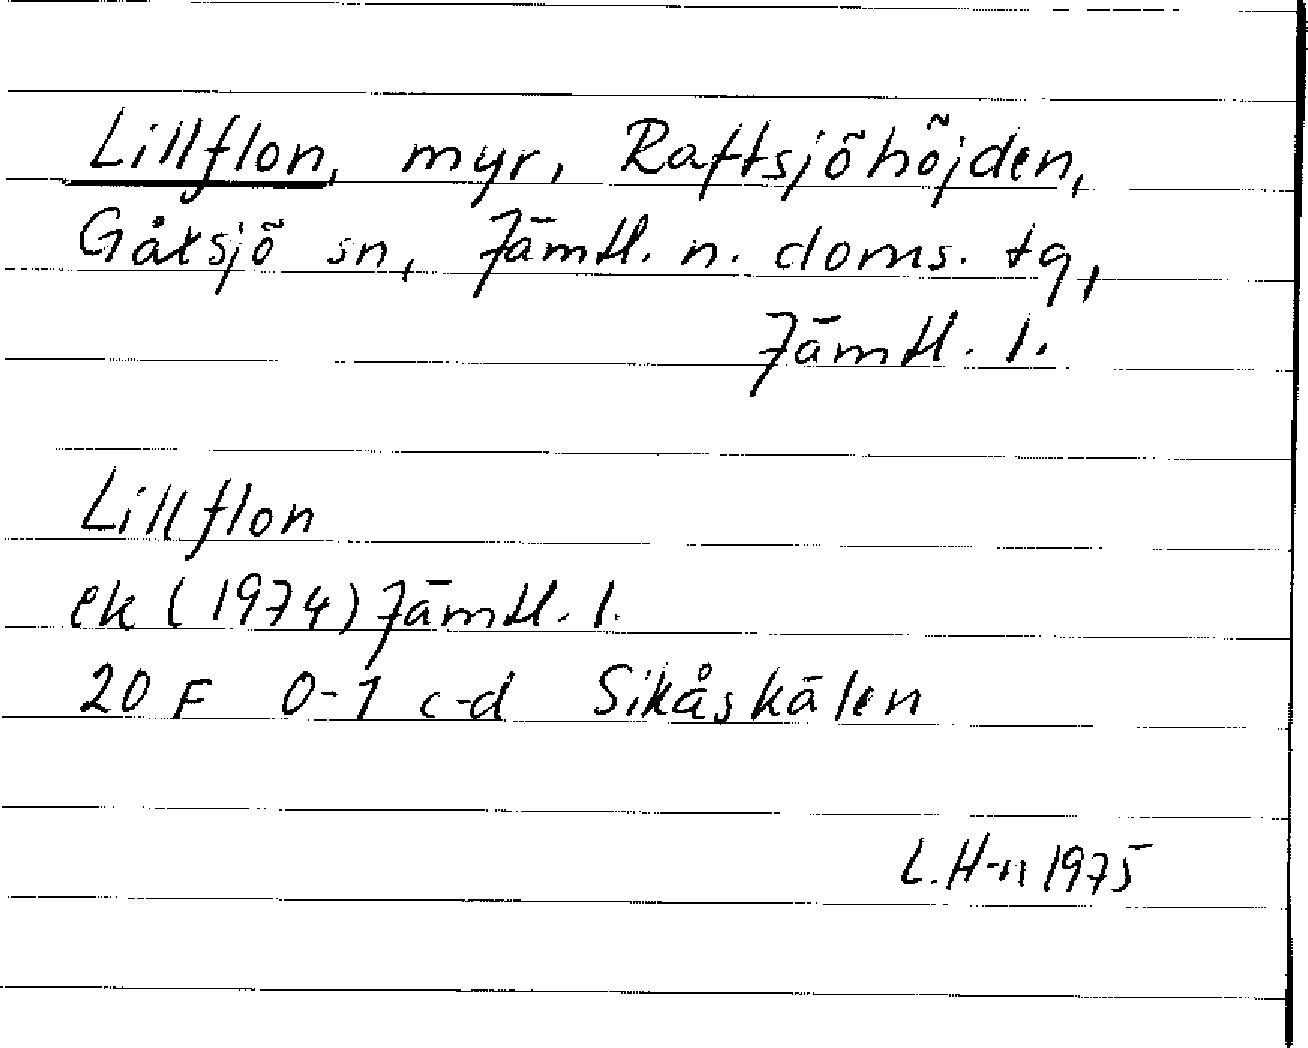 Lillflon, myr, Raftsjöhöjden,
Gåxsjö sn, Jämtl. n. doms. tg,
Jämtl. l.
Lillflon
ek (1974) Jämtl. l.
20 F 0-1 c-d Sikåskälen
L. H-n 1975